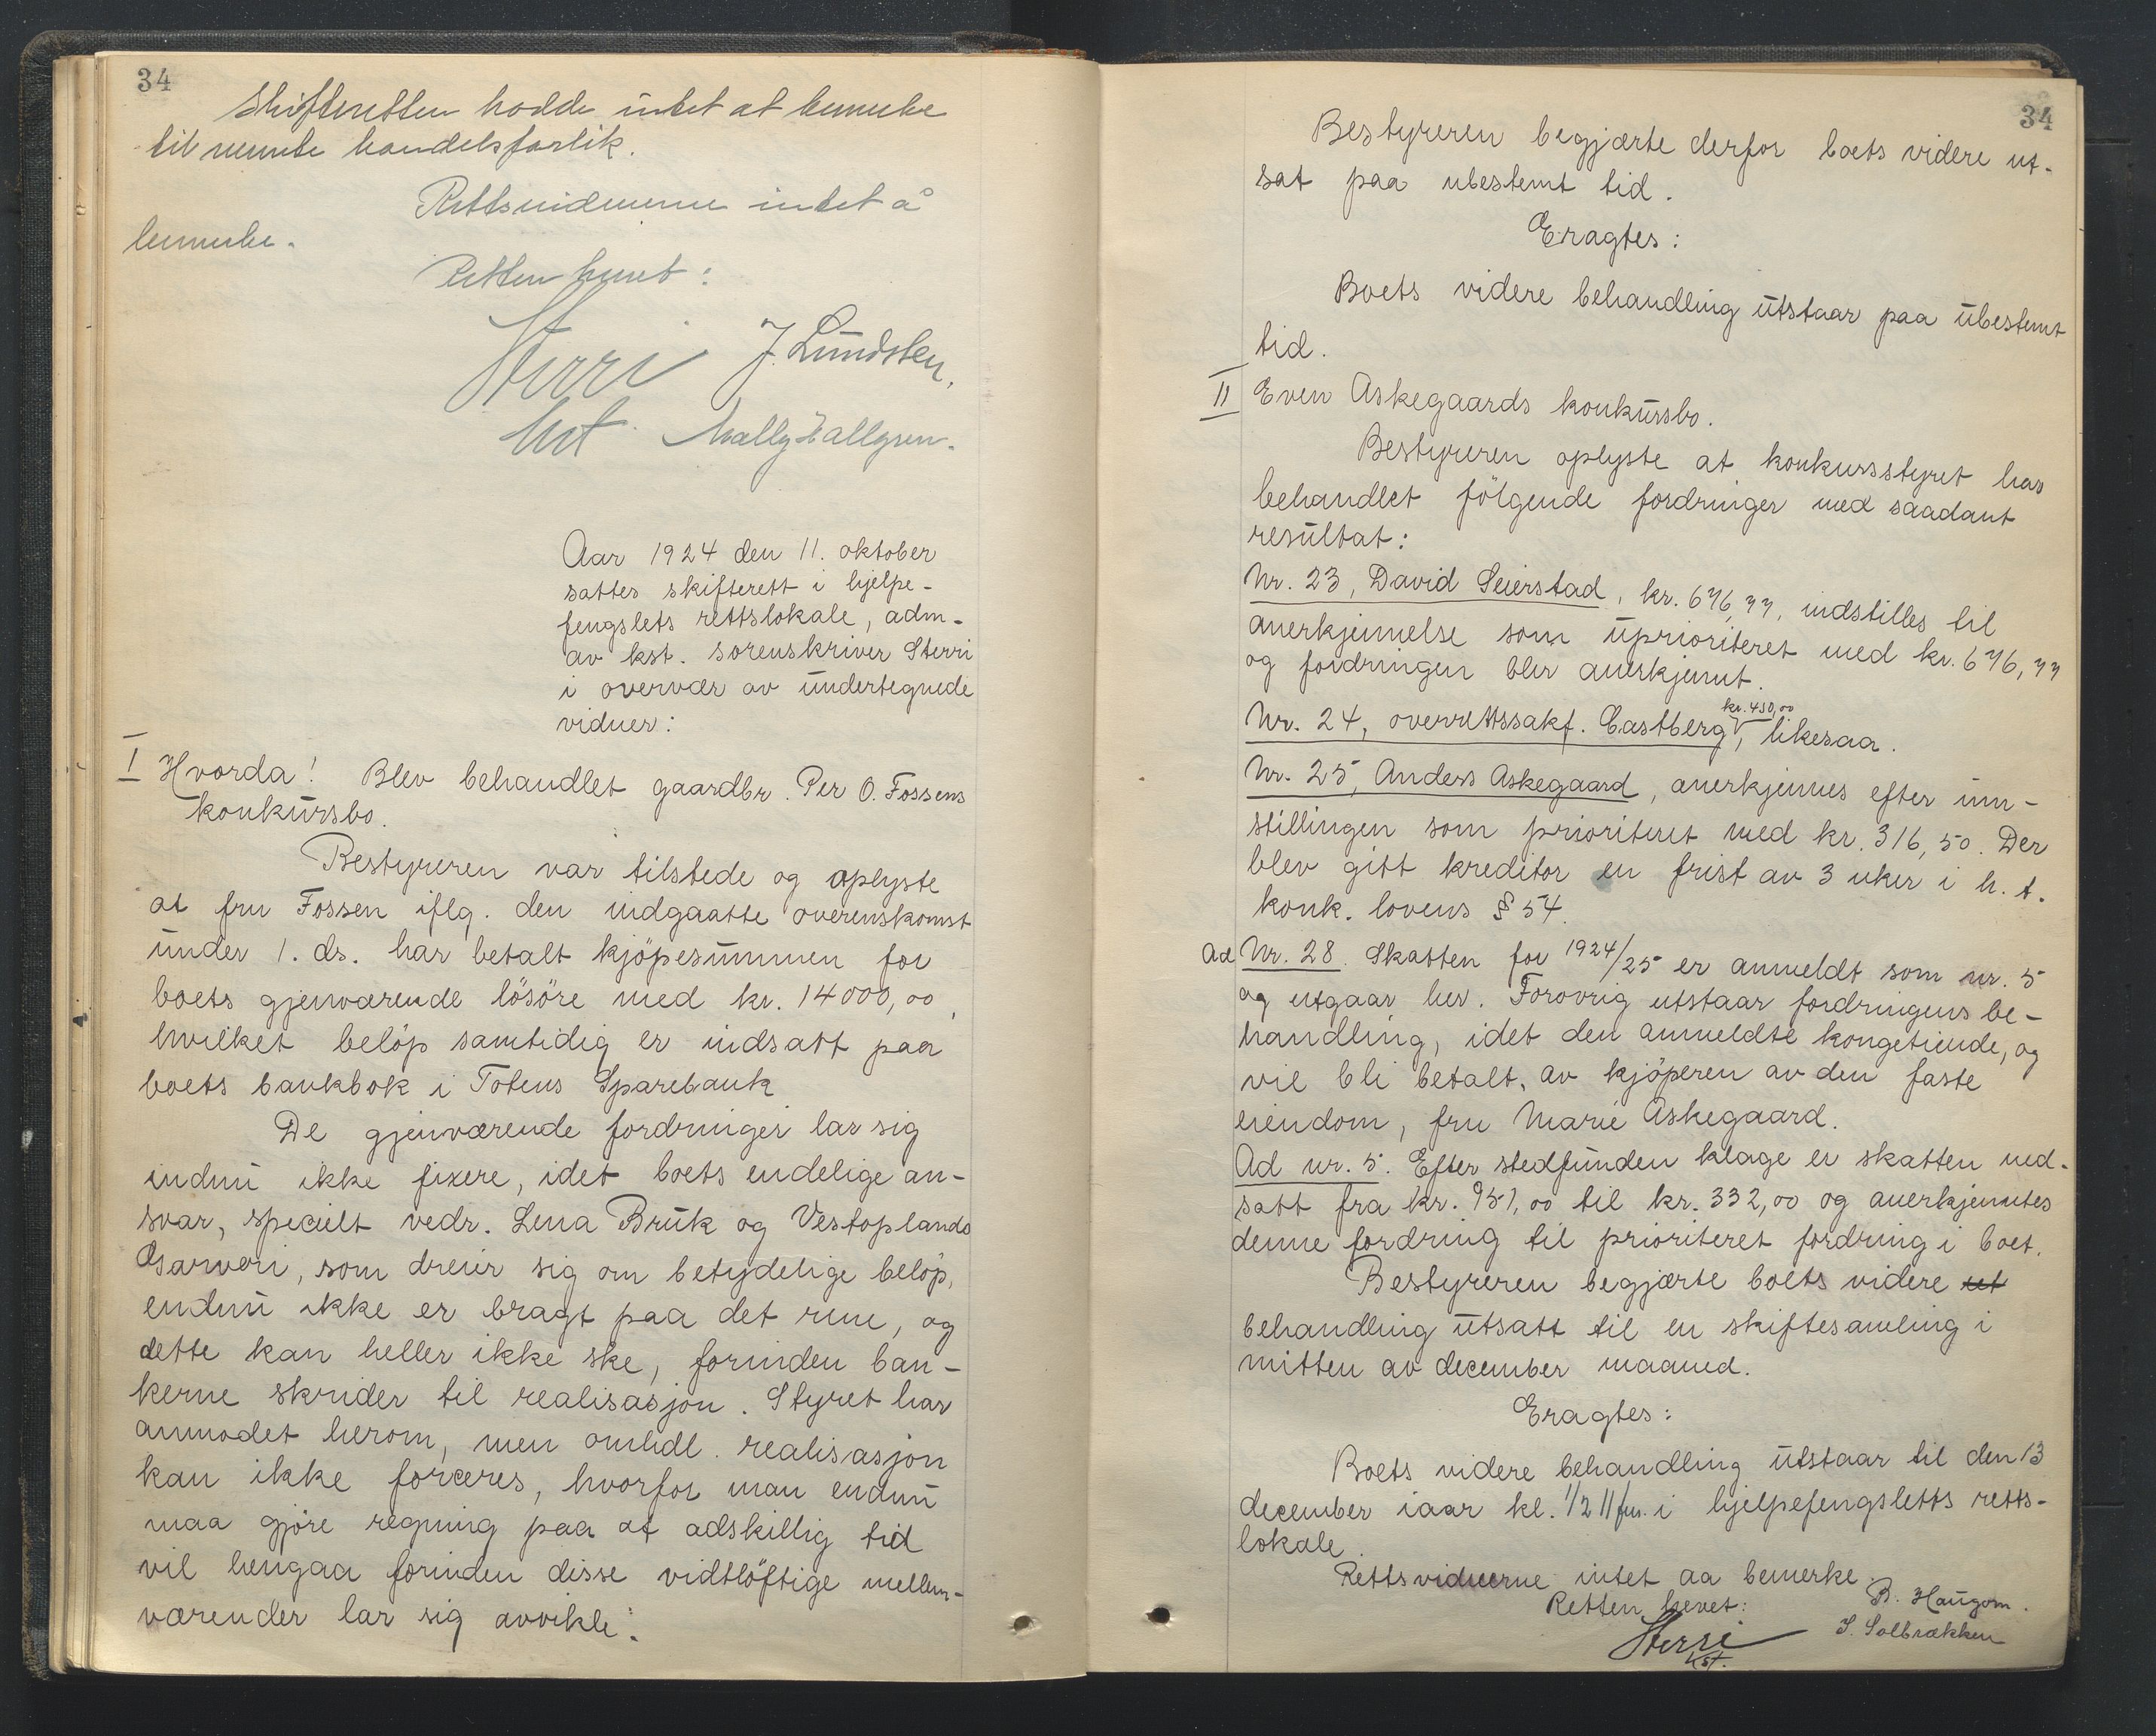 34
Skifteretten hadde intet at bemerke
til nevnte handelsforlik.
Rettsvidnerne intet å
bemerke.
Retten hevet:
Sterri J. Lundsten,
kst. Hallgren.
Aar 1924 den 11. oktober
sattes skifterett i hjelpe-
fengslets rettslokale, adm.
av kst. sorenskriver Sterri
i overvær av undertegnede
vidner:
I Hvorda! Blev behandlet gaardbr. Per O. Fossens
konkursbo.
Bestyreren var tilstede og oplyste
at fru Fossen iflg. den indgaatte overenskomst
under 1. ds. har betalt kjöpesummen for
boets gjenværende lösöre med kr. 14000,00,
hvilket belöp samtidig er indsatt paa
boets bankbok i Totens Sparebank
De gjenværende fordringer lar sig
endnu ikke fixere, idet boets endelige an-
svar, specielt vedr. Lena Bruk og Vestoplands
Garveri, som dreier sig om betydelige belöp,
endnu ikke er bragt paa det rene, og
dette kan heller ikke ske, forinden ban-
kerne skrider til realisasjon. Styret har
anmodet herom, men omhdl. realisasjon
kan ikke forceres, hvorfor man endnu
maa gjöre regning paa at adskillig tid
vil hengaa forinden disse vidtlöftige mellem-
værender lar sig avvikle.
34
Bestyreren begjærte derfor boets videre ut-
sat paa ubestemt tid.
Eragtes:
Boets videre behandling utstaar paa ubestemt
tid.
II Even Askegaards konkursbo.
Bestyreren oplyste at konkursstyret har
behandlet fölgende fordringer med saadant
resultat:
Nr. 23, David Seierstad, kr. 676,77, indstilles til
anerkjennelse som uprioriteret med kr. 676,77
og fordringen blev anerkjennt.
kr. 450,00
Nr. 24, overrettssakf. Castberg, likesaa.
Nr. 25, Anders Askegaard, anerkjennes efter inn-
stillingen som prioriteret med kr. 316,50. Der
blev gitt kreditor en frist av 3 uker i h. t.
konk. lovens § 54.
Ad Nr. 28. Skatten for 1924/25 er anmeldt som nr. 5
og utgaar her. Forövrig utstaar fordringens be-
handling, idet den anmeldte kongetiende, og
vil bli betalt, av kjöperen av den faste
eiendom, fru Marie Askegaard.
Ad nr. 5. Efter stedfunden klage er skatten ned-
satt fra kr. 951,00 til kr. 332,00 og anerkjenntes
denne fordring til prioriteret fordring i boet.
Bestyreren begjærte boets videre ut
behandling utsatt til en skiftesamling i
mitten av december maaned.
Eragtes:
Boets videre behandling utstaar til den 13
december iaar kl. 1/2 11 fm. i hjelpefengsletts retts-
lokale.
Rettsvidnerne intet aa bemerke.
Retten hevet: B. Haugom.
Sterri S. Solbrækken
kst.